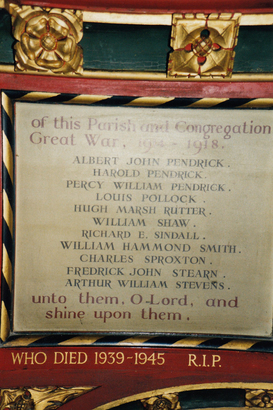 of this Parish and Congregation
Great War, 1914 - 1918.
ALBERT JOHN PENDRICK.
HAROLD PENDRICK.
PERCY WILLIAM PENDRICK.
LOUIS POLLOCK.
HUGH MARSH RUTTER.
WILLIAM SHAW.
RICHARD E. SINDALL.
WILLIAM HAMMOND SMITH.
CHARLES SPROXTON.
FREDRICK JOHN STEARN.
ARTHUR WILLIAM STEVENS.
unto them, O Lord, and
shine upon them.
WHO DIED 1939-1945 R.I.P.